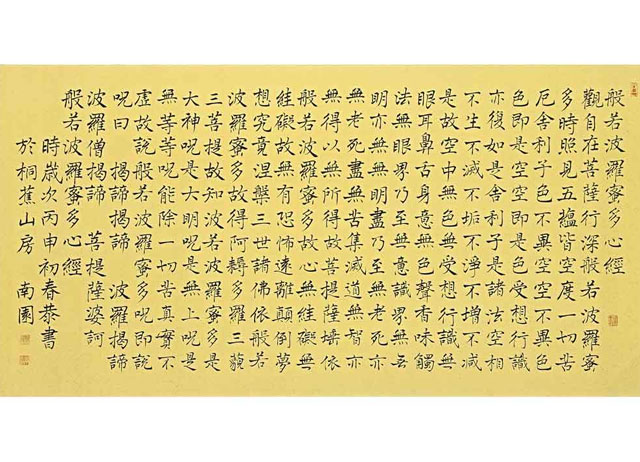 般若波羅蜜多心經
觀自在菩薩行深般若波羅蜜
多時照見五蘊皆空度一切苦
厄舍利子色不異空空不異色
色即是空空即是色受想行識
亦復如是舍利子是諸法空相
不生不滅不垢不淨不增不減
是故空中無色無受想行識無
眼耳鼻舌身意無色聲香味觸
法無眼界乃至無意識界無无
明亦無無明盡乃至無老死亦
無老死盡無苦集滅道無智亦
無得以無所得故菩提薩埵依
般若波羅蜜多故心無絓礙無
絓礙故無有恐怖遠離顛倒夢
想究竟涅槃三世諸佛依般若
波羅蜜多故得阿耨多羅三藐
三菩提故知般若波羅蜜多是
大神呪是大明呪是無上呪是
無等等呪能除一切苦真實不
虛故說般若波羅蜜多呪即說
呪曰 揭諦揭諦 波羅揭諦
波羅僧揭諦 菩提薩婆訶
般若波羅蜜多心經
時歲次丙申初春恭書
於桐蕉山房 南園